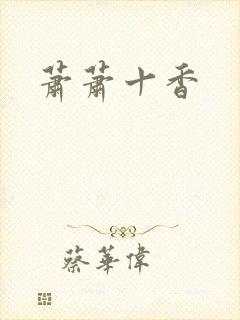 蕭蕭十香
蔡華偉